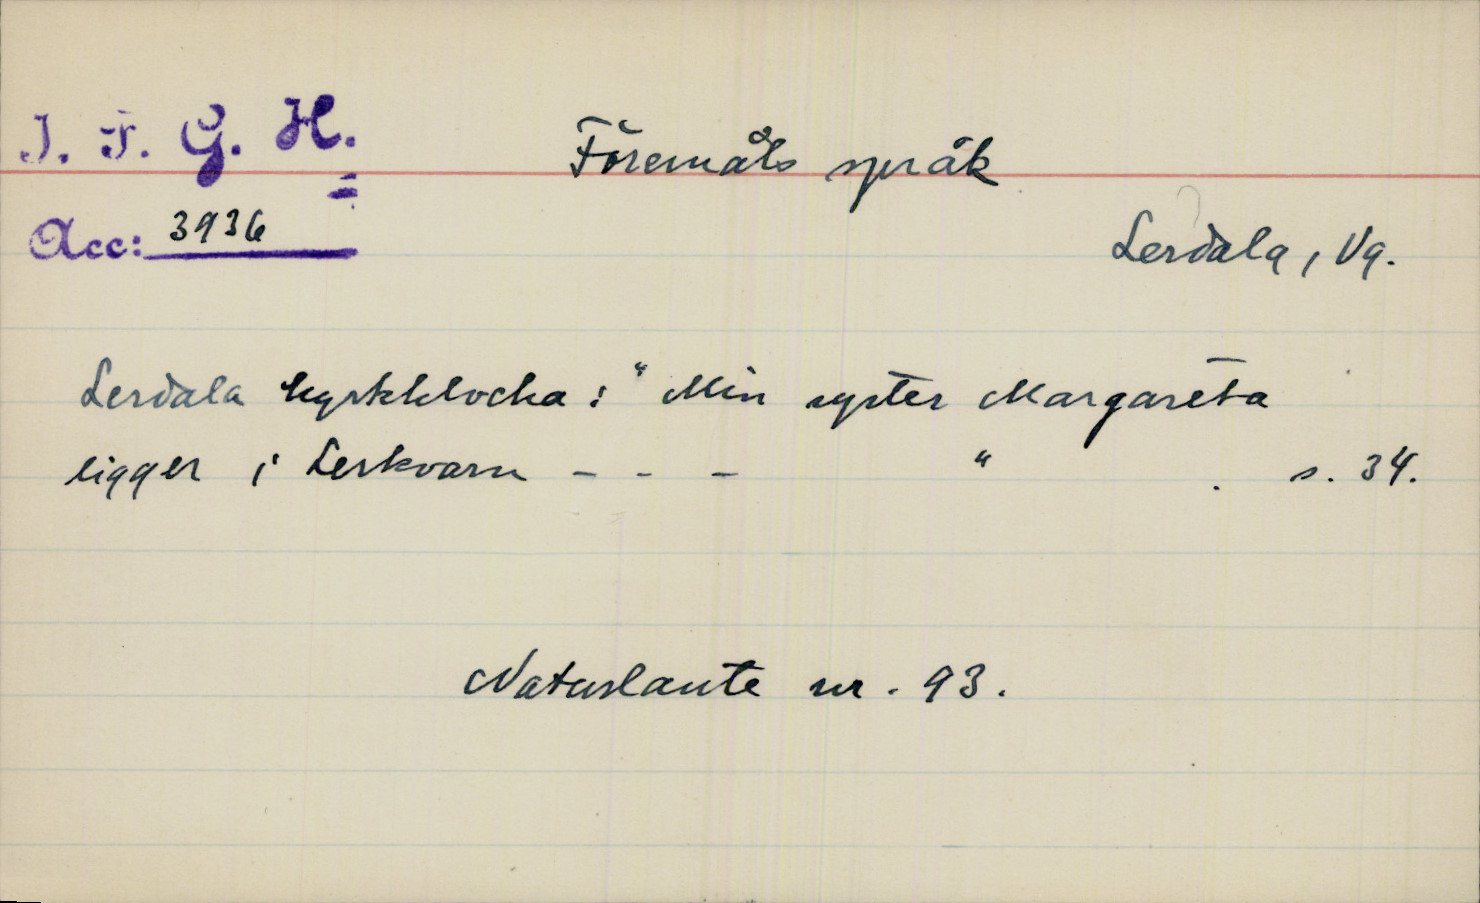 I. F. G. H.
Föremåls språk
Acc: 3936
Lerdala, Vg.
Lerdala kyrkklocka: "Min syster Margareta
ligger i Lerkvarn - - - " . s. 34.
Naturlaute nr. 93.